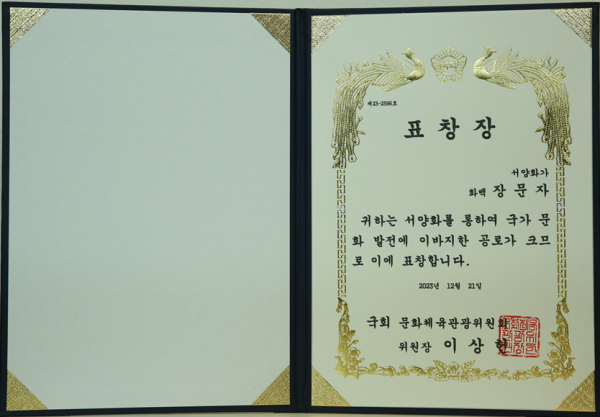 제23-2598호
표 창 장
서양화가
화백 장 문 자
귀하는 서양화를 통하여 국가 문
화 발전에 이바지한 공로가 크므
로 이에 표창합니다.
2023년 12월 21일
국회 문화체육관광위원회
위원장 이 상 헌